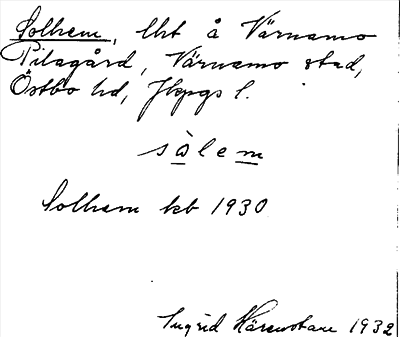 Solhem, lht å Värnamo
Pilagård, Värnamo stad,
Östbo hd, Jkpgs l.
sàlem
Solhem kb 1930
Ingrid 1932